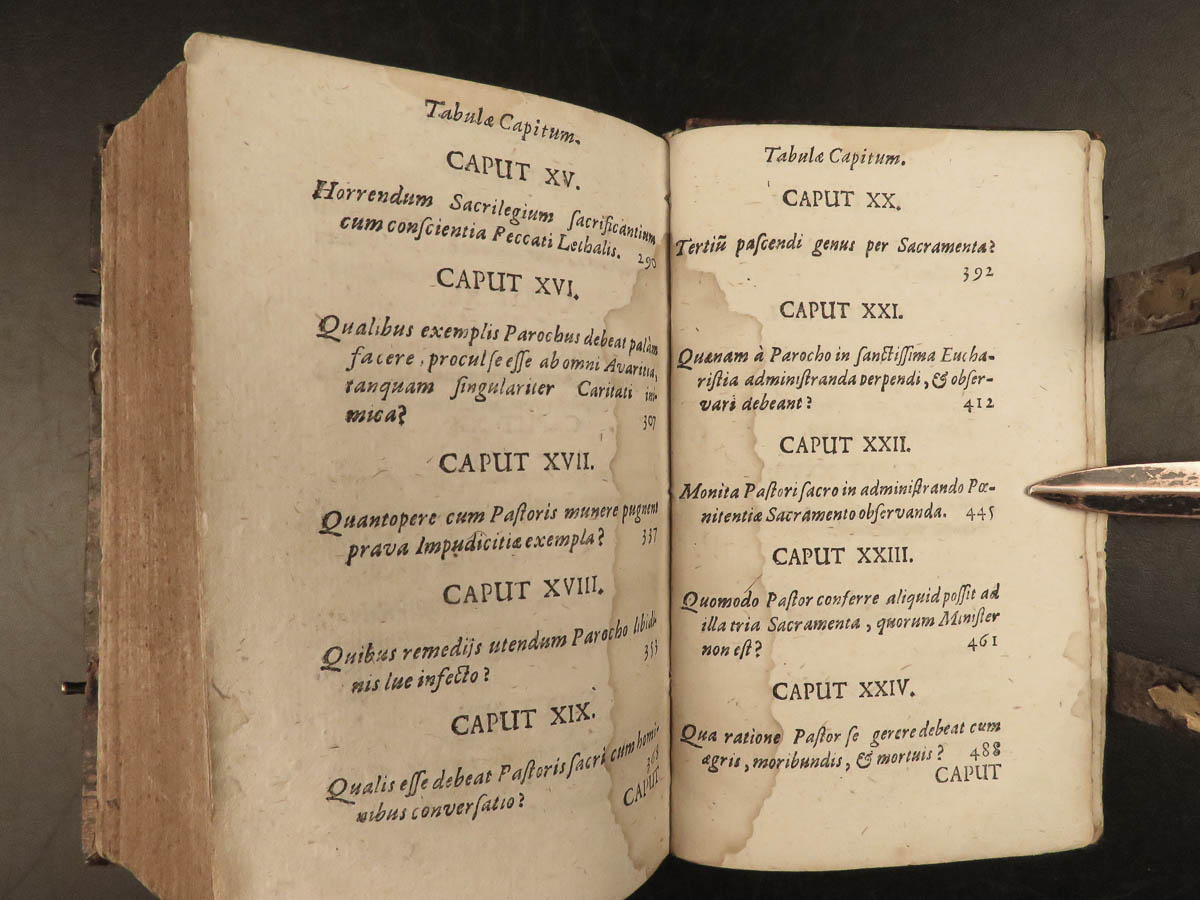 Tabulæ Capitum.
CAPUT XV.
Horrendum Sacrilegium ſacrificantium
cum conſcientia Peccati Lethalis. 290
CAPUT XVI.
Qualibus exemplis Parochus debeat palàm
facere, procul ſe eſſe ab omni Avaritia,
tanquam ſingulariter Caritati ini-
mica? 307
CAPUT XVII.
Quantopere cum Paſtoris munere pugnent
prava Impudicitiæ exempla? 337
CAPUT XVIII.
Quibus remedijs utendum Parocho libidi-
nis lue infecto? 353
CAPUT XIX.
Qualis eſſe debeat Paſtoris ſacri cum homi-
nibus converſatio? 368
CAPUT
Tabulæ Capitum.
CAPUT XX.
Tertiũ paſcendi genus per Sacramenta?
392
CAPUT XXI.
Quænam à Parocho in ſanctiſſima Eucha-
riſtia adminiſtranda perpendi, & obſer-
vari debeant? 412
CAPUT XXII.
Monita Paſtori ſacro in adminiſtrando Pœ-
nitentiæ Sacramento obſervanda. 445
CAPUT XXIII.
Quomodo Paſtor conferre aliquid poſſit ad
illa tria Sacramenta, quorum Miniſter
non eſt? 461
CAPUT XXIV.
Qua ratione Paſtor ſe gerere debeat cum
ægris, moribundis, & mortuis? 488
CAPUT